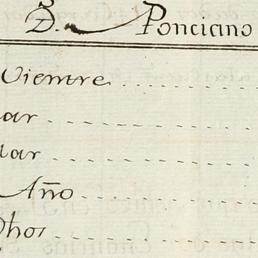 D. Ponciano
Vientre
ar
lar
Año
Dhos